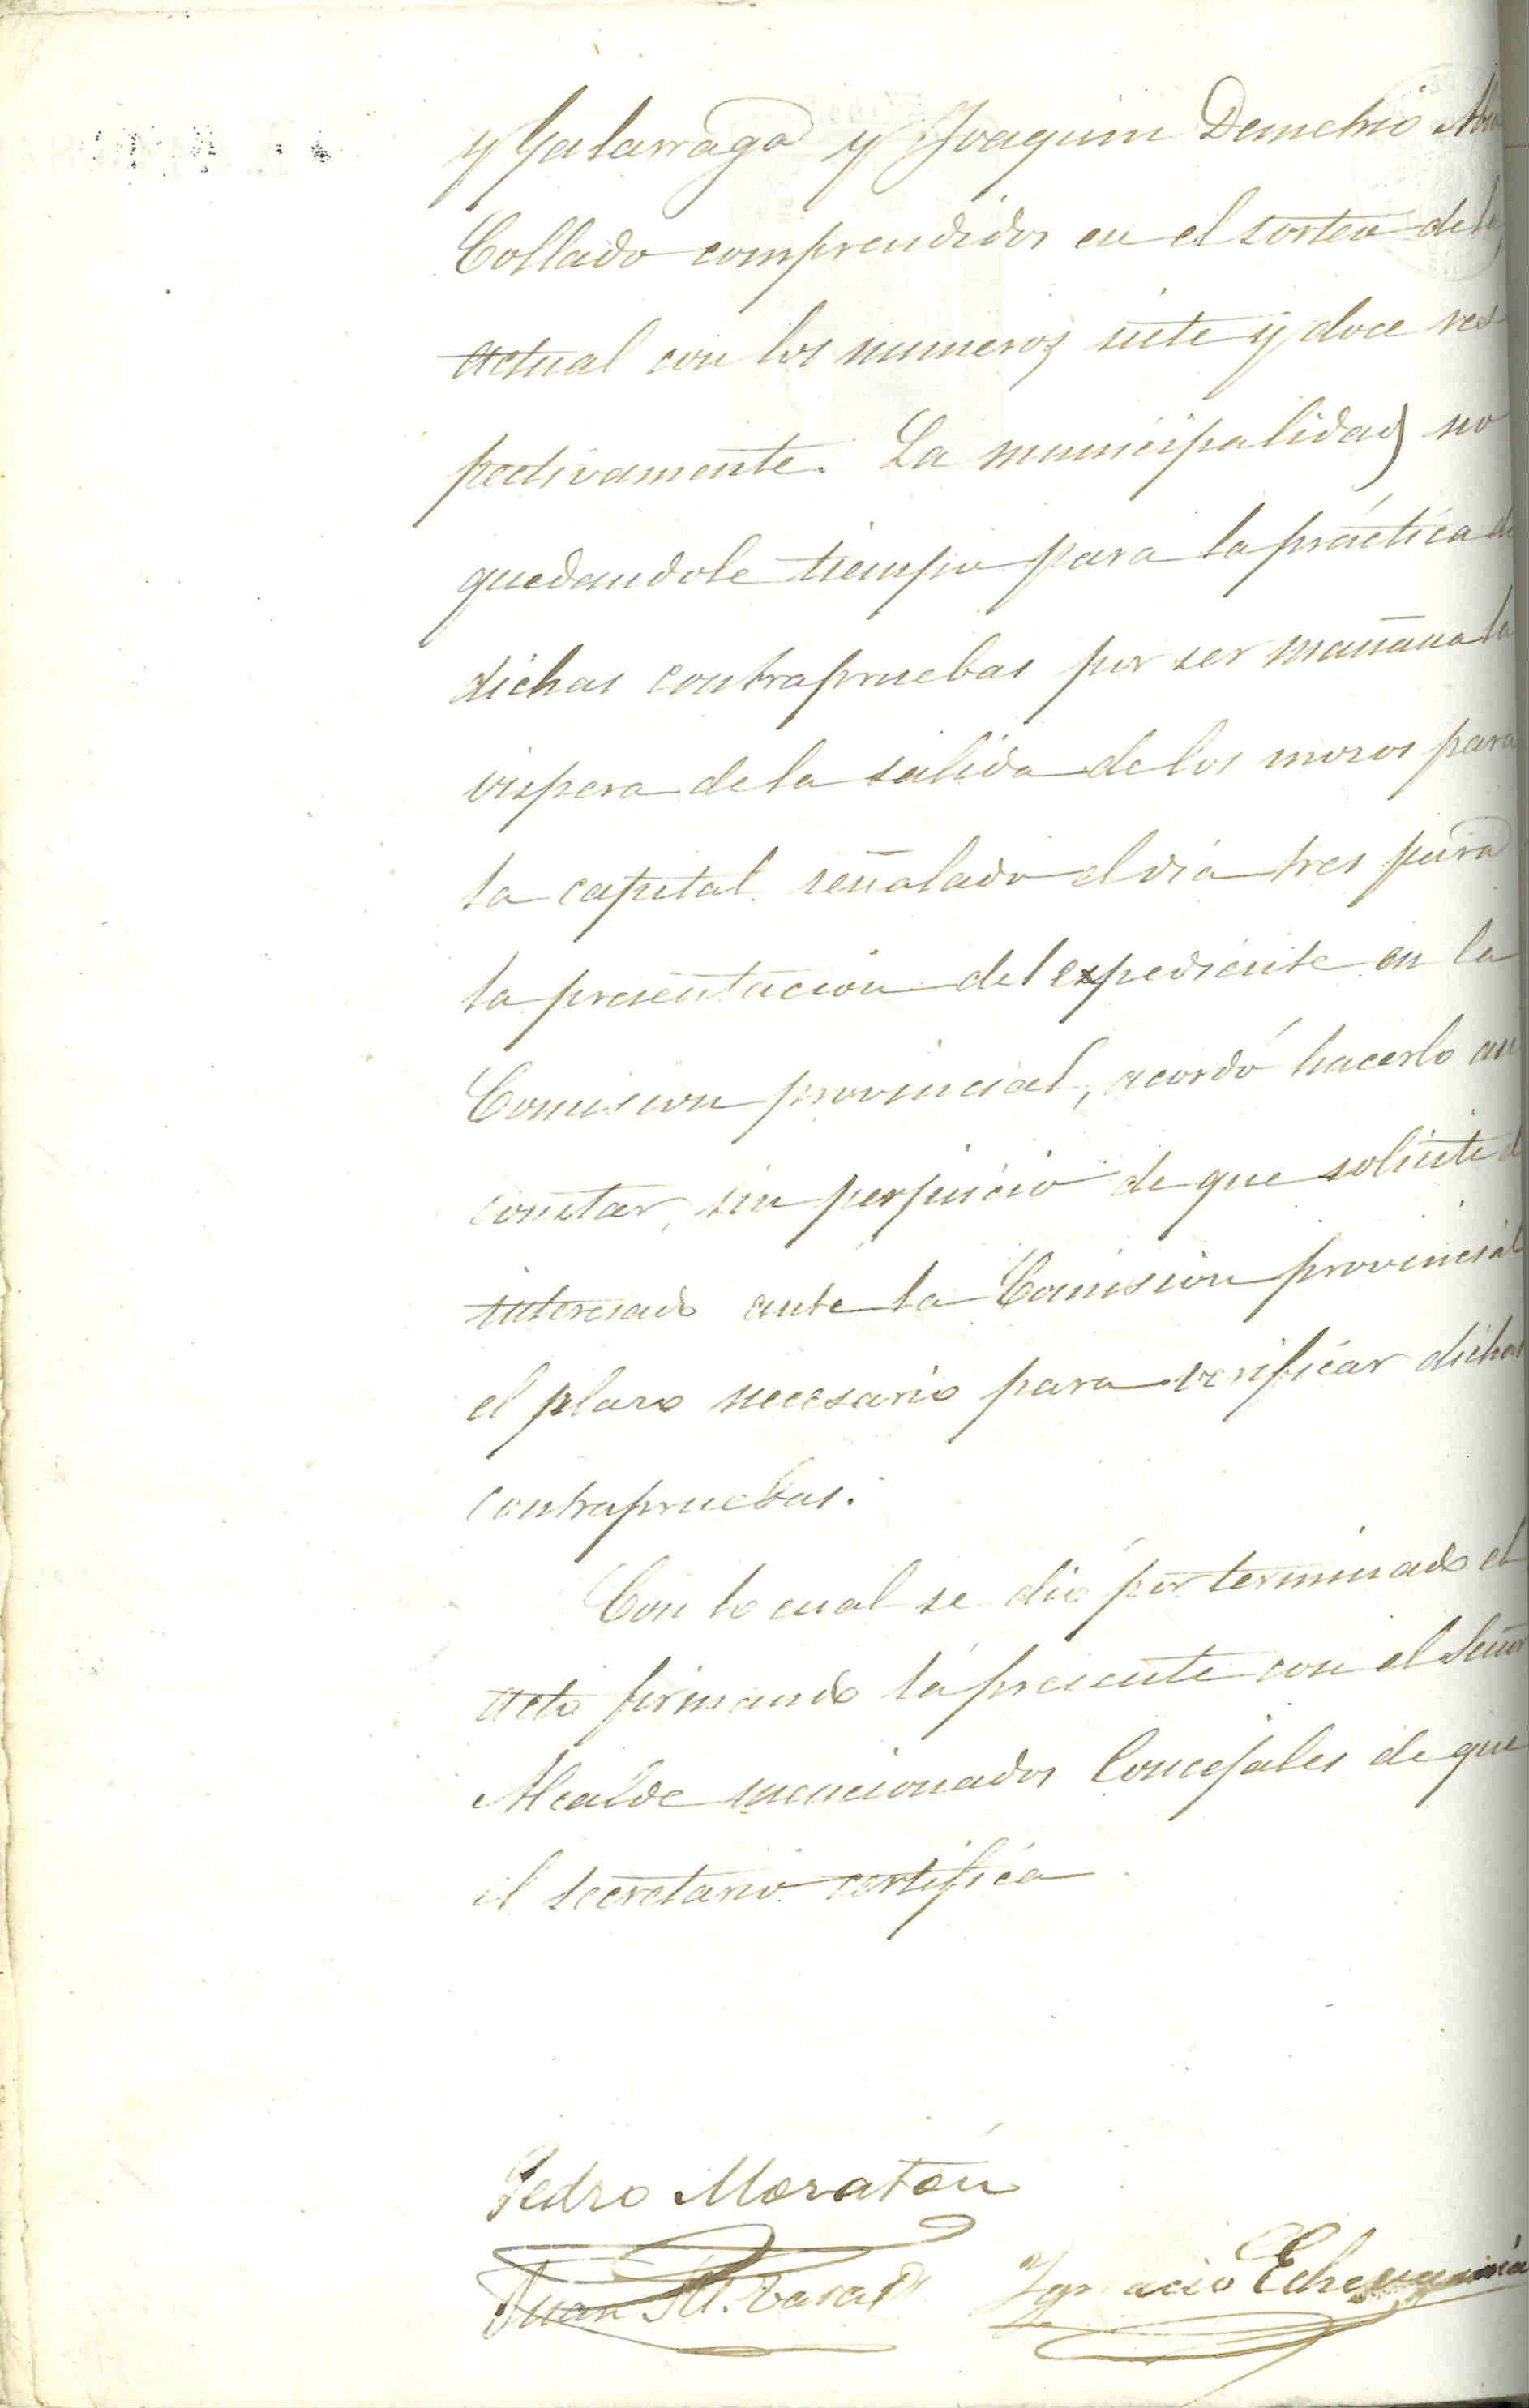 y Galarraga y Joaquin Demetrio
Collado comprendidos en el sorteo del
actual con los numeros siete y doce res
pectivamente. La municipalidad no
quedandole tiempo para la práctica de
dichas contrapruebas por ser mañana la
vispera de la salida de los mozos para
la capital señalado el dia tres para
la presentacion del expediente en la
Comision provincial, acordó hacerlo asi
constar, sin perjuicio de que solicite el
interesado ante la Comision provincial
el plazo necesario para verificar dichas
contrapruebas.
Con lo cual se dió por terminado el
acto firmando la presente con el Señor
Alcalde mencionados Concejales de que
el secretario certifica
Pedro Moratón
Juan Ignacio Echeverria